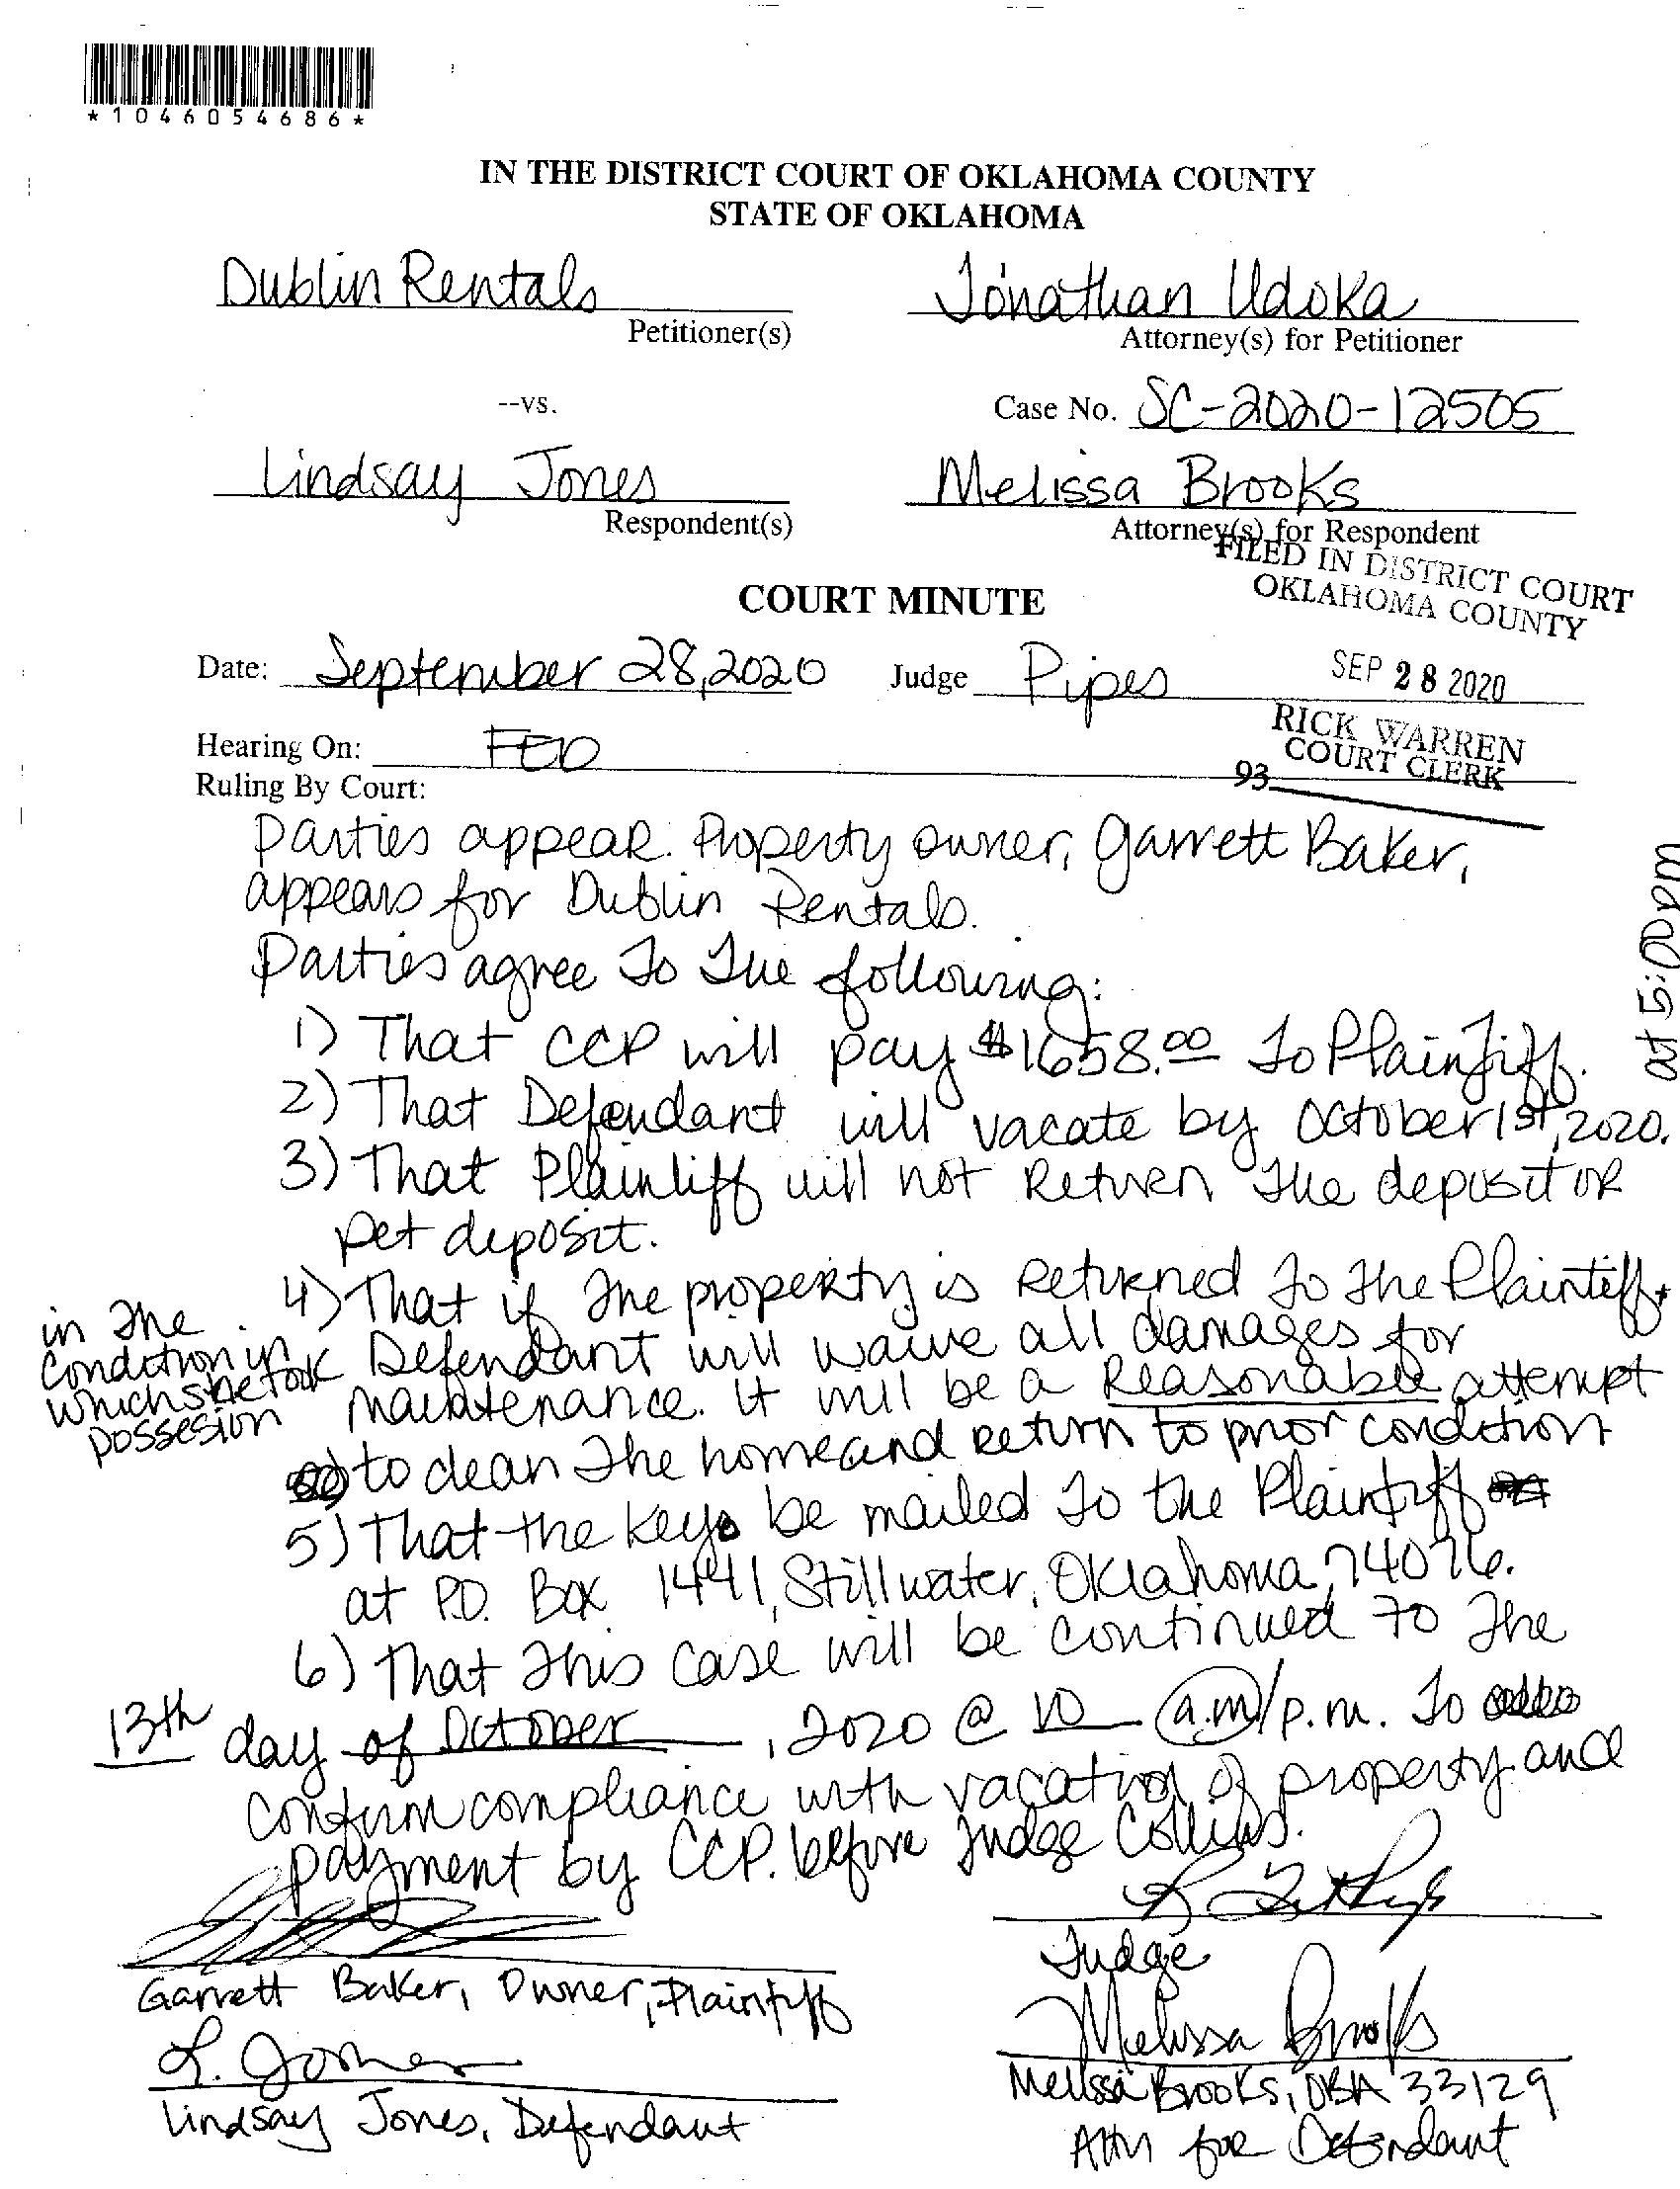 *1046054686*
IN THE DISTRICT COURT OF OKLAHOMA COUNTY
STATE OF OKLAHOMA
Dublin Rentals
Petitioner(s)
Jonathan Udoka
Attorney(s) for Petitioner
--vs.
Case No. SC-2020-12505
Lindsay Jones
Respondent(s)
Melissa Brooks
Attorney(s) for Respondent
FILED IN DISTRICT COURT
OKLAHOMA COUNTY
COURT MINUTE
Date: September 28, 2020 Judge Pipes
SEP 28 2020
RICK WARREN
COURT CLERK
93
Hearing On: FED
Ruling By Court:
Parties appear. Property owner, Garrett Baker,
appears for Dublin Rentals.
Parties agree to the following:
1) That CCP will pay $1658.00 to Plaintiff.
2) That Defendant will vacate by October 1st, 2020.
at 5:00pm
3) That Plaintiff will not return the deposit or
pet deposit.
4) That if the property is returned to the Plaintiff
in the
condition in
which she took
possesion
Defendant will waive all damages for
maintenance. It will be a reasonable attempt
to clean the home and return to prior condition
5) That the keys be mailed to the Plaintiff
at P.O. Box 1441, Stillwater, Oklahoma, 74076.
6) That this case will be continued to the
13th day of October, 2020 @ 10 a.m/p.m. to
confirm compliance with vacation of property and
payment by CCP. before Judge Collins.
Judge
Garrett Baker, Owner, Plaintiff
Melissa Brooks
L. Jones
Melissa Brooks, OBA 33129
Lindsay Jones, Defendant
Attn for Defendant